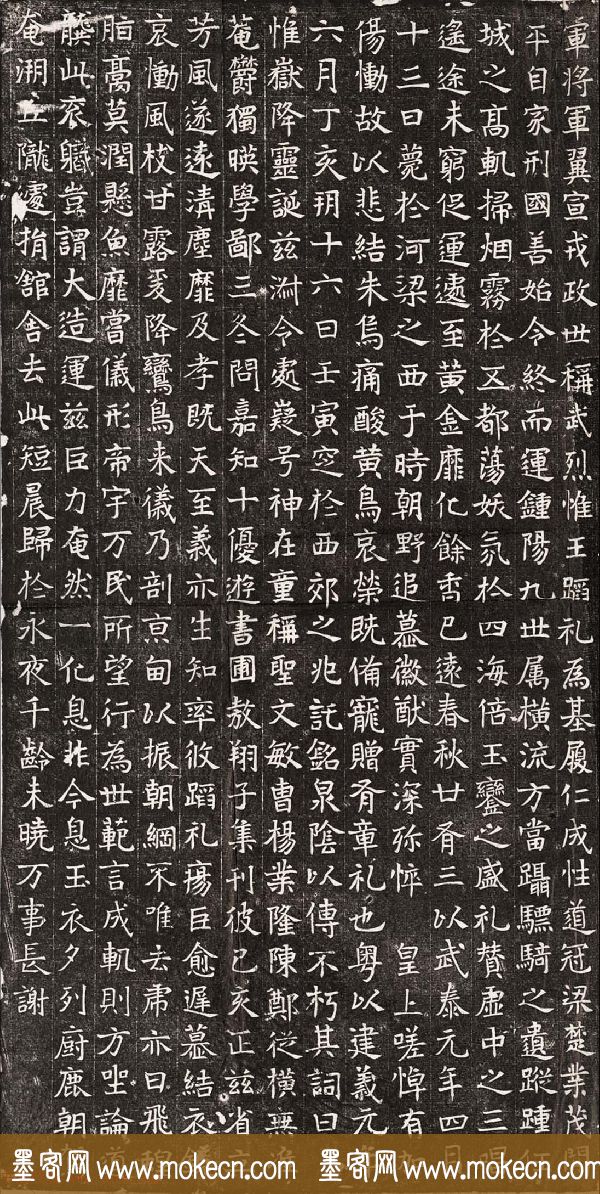 軍將軍翼宣戎政世稱武烈惟王蹈礼為基履仁成性道冠梁楚業茂間
平自家刑國善始令終而運鍾陽九世属橫流方當躡驃騎之遺蹤踵
城之高軌掃烟霧於五都蕩妖氛於四海倍玉鑾之盛礼贊虛中之三
遙途未窮促運遽至黃金靡化餘香已遠春秋廿有三以武泰元年四月
十三日薨於河梁之西于時朝野追慕徽猷實深弥悴 皇上嗟悼有
傷慟故以悲結朱鳥痛酸黃鳥哀榮既備寵贈有章礼也粵以建義元
六月丁亥玥十六日壬寅窆於西郊之兆託銘泉陰以傳不朽其詞曰
惟嶽降靈誕兹淵令處嶷号神在童稱聖文敏曹楊業隆陳鄭從橫無
菴欝獨暎學鄙三冬問嘉知十優遊書圃敖翔子集刊彼己亥正兹省
芳風遂遠清塵靡及孝既天至義亦生知率攸蹈礼瘍巨愈遅慕結衣
哀慟風枝甘露爰降鸞鳥来儀乃剖京甸以振朝綱不唯去帝亦曰飛
脂膏莫潤懸魚靡嘗儀形帝宇万民所望行為世範言成軌則方坐論
龔此衮軄豈謂大造運兹巨力奄然一化息非今息玉衣夕列廚鹿朝
奄淵丘隴遽捐舘舍去此短晨歸於永夜千齡未曉万事長謝
墨客网 www.mokecn.com 墨客网 www.mokecn.com